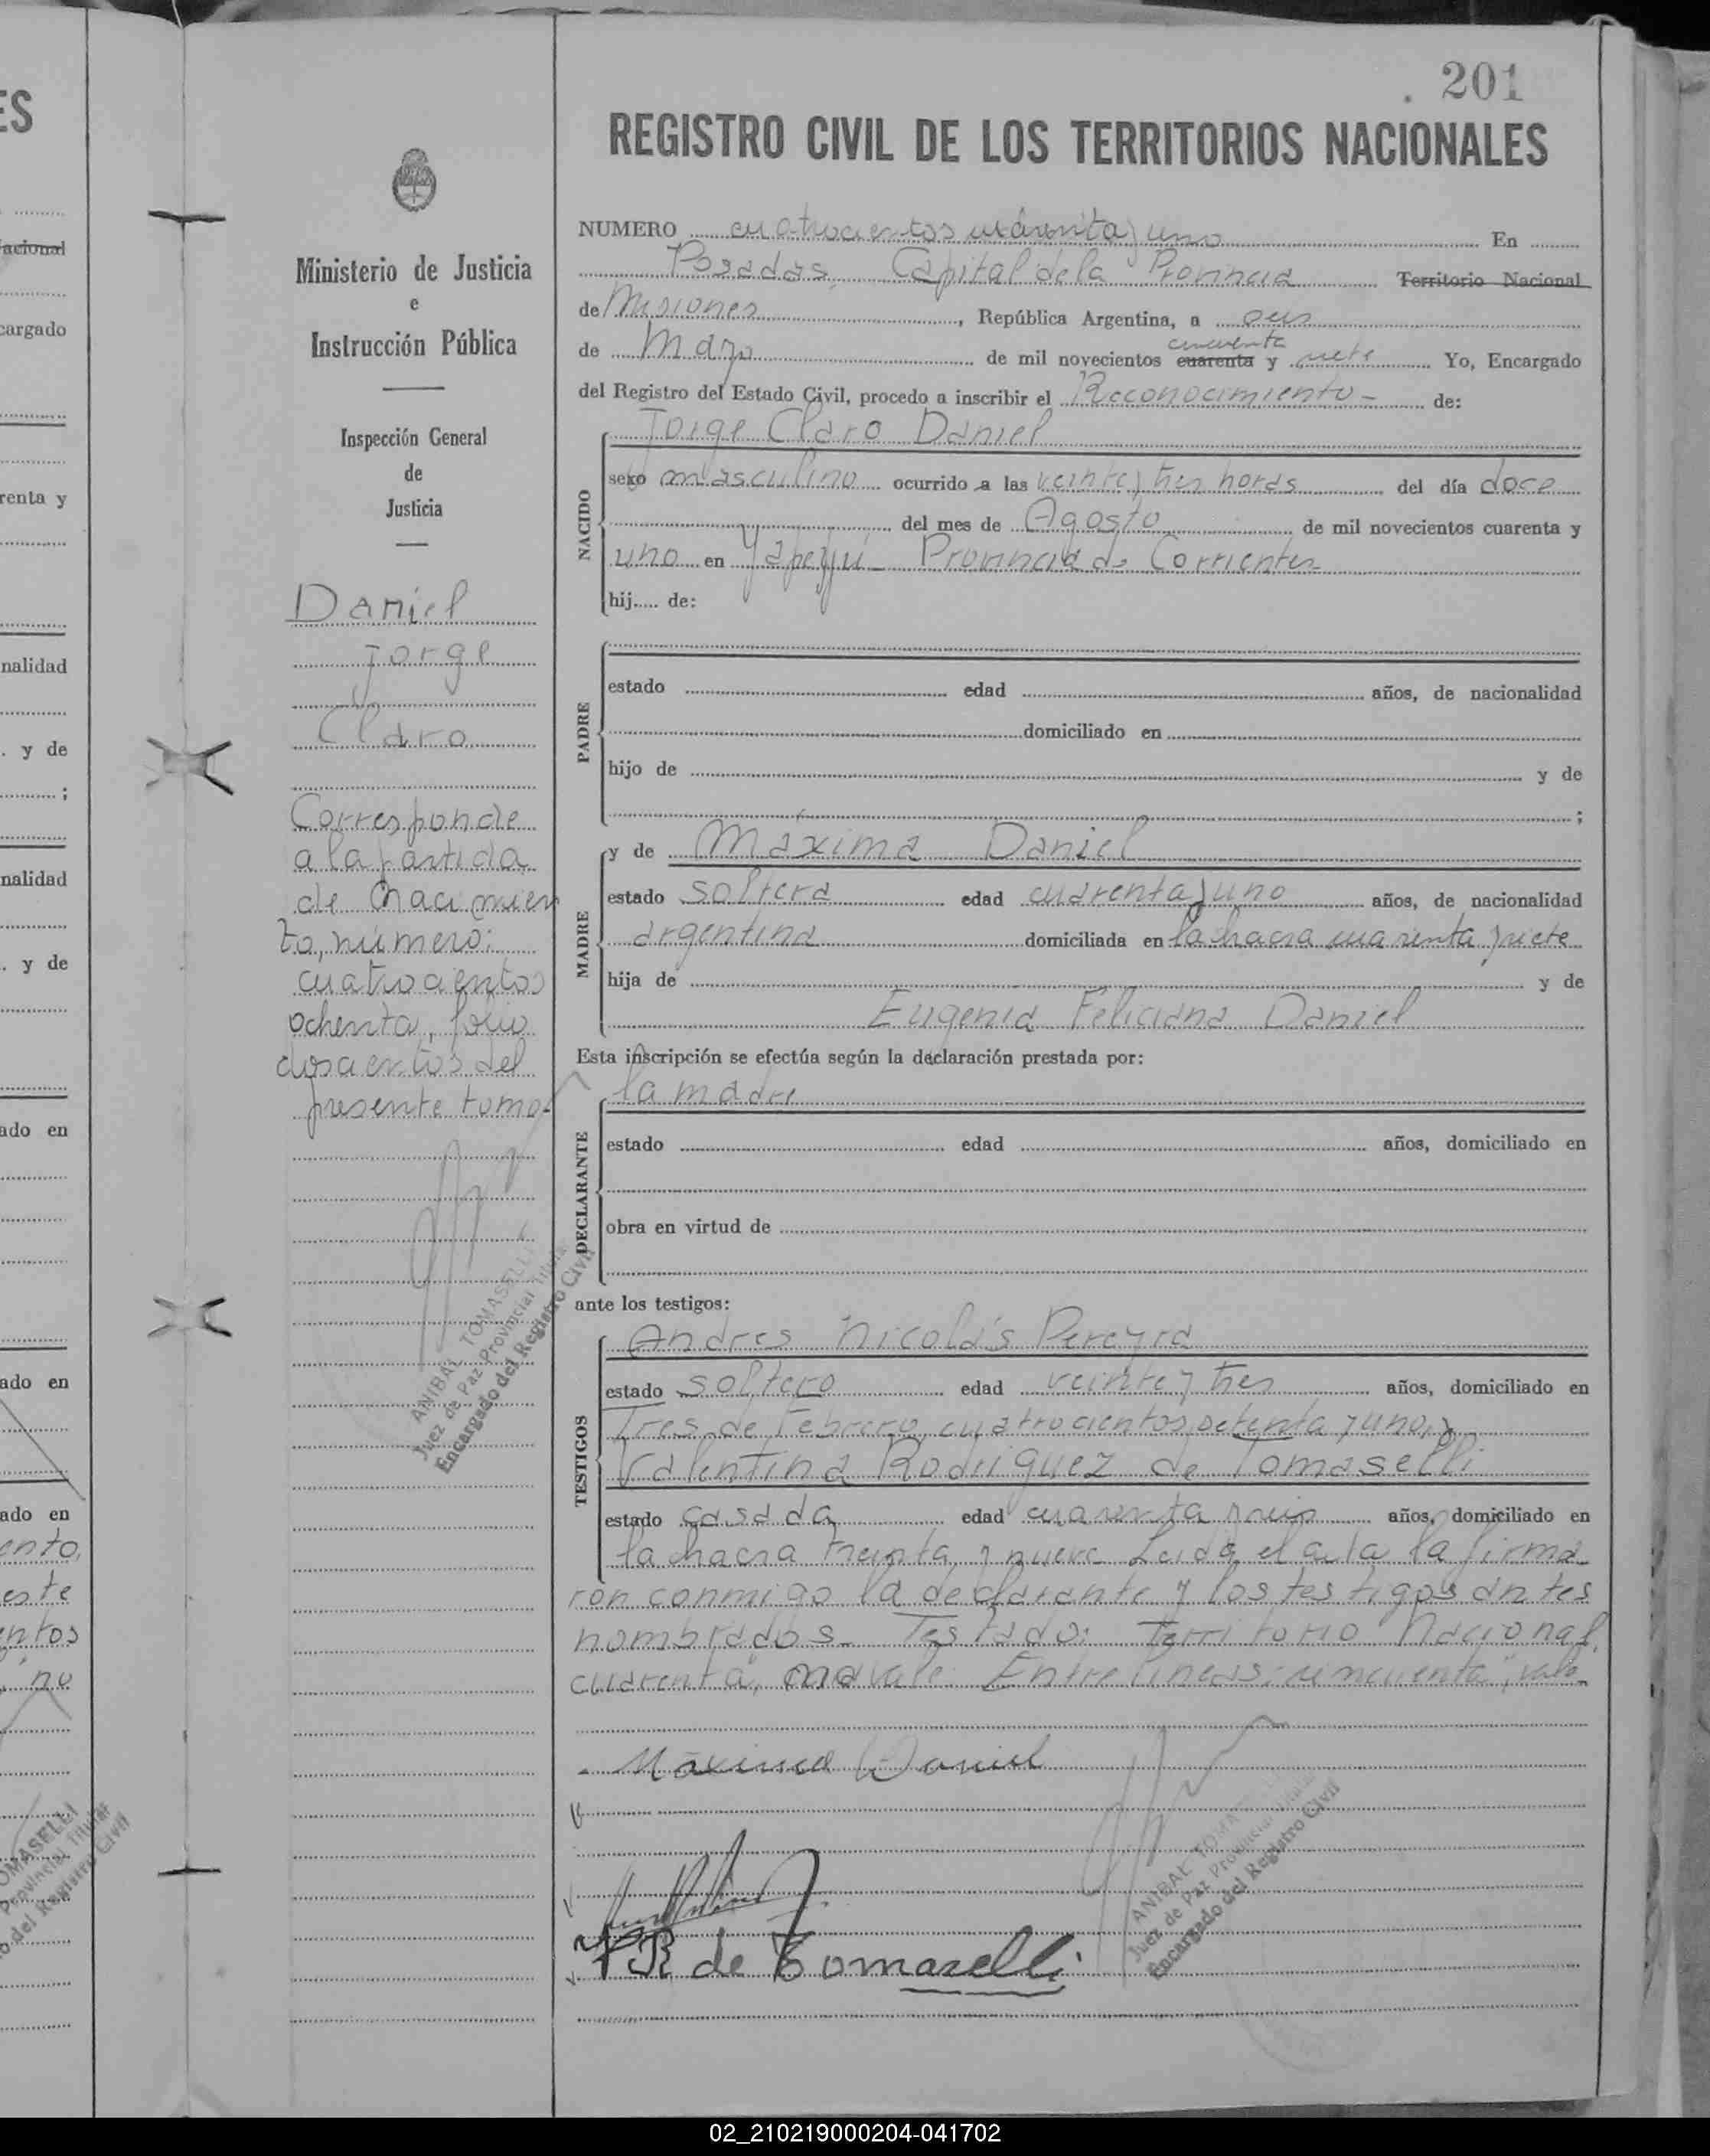 201
REGISTRO CIVIL DE LOS TERRITORIOS NACIONALES
Ministerio de Justicia
e
Instrucción Pública
Inspección General
de
Justicia
Daniel
Jorge
Claro
Corresponde
a la partida
de Nacimien
to, número:
cuatrocientos
ochenta, folio
doscientos del
presente tomo
ANIBAL TOMASELLI
Juez de Paz Provincial Titular
Encargado del Registro Civil
NUMERO cuatrocientos cuarenta y uno En
Posadas, Capital de la Provincia Territorio Nacional
de Misiones, República Argentina, a seis
cincuenta
de Mayo de mil novecientos cuarenta y siete Yo, Encargado
del Registro del Estado Civil, procedo a inscribir el Reconocimiento - de:
NACIDO
Jorge Claro Daniel
sexo masculino ocurrido a las veinte y tres horas del día doce
del mes de Agosto de mil novecientos cuarenta y
uno en Yapeyú - Provincia de Corrientes
hij..... de:
PADRE
estado edad años, de nacionalidad
domiciliado en
hijo de y de
;
MADRE
y de Máxima Daniel
estado soltera edad cuarenta y uno años, de nacionalidad
argentina domiciliada en la chacra cuarenta y siete
hija de y de
Eugenia Feliciana Daniel
Esta inscripción se efectúa según la declaración prestada por:
DECLARANTE
la madre
estado edad años, domiciliado en
obra en virtud de
ante los testigos:
TESTIGOS
Andres Nicolás Pereyra
estado soltero edad veinte y tres años, domiciliado en
Tres de Febrero cuatrocientos setenta y uno, y
Valentina Rodriguez de Tomaselli
estado casada edad cuarenta y seis años, domiciliado en
la chacra treinta y nueve. Leida el acta la firma
ron conmigo la declarante y los testigos antes
nombrados - Testado: Territorio Nacional,
cuarenta", no vale. Entre lineas: cincuenta", vale -
Máxima Daniel
V R de Tomaselli
ANIBAL TOMASELLI
Juez de Paz Provincial Titular
Encargado del Registro Civil
02_210219000204-041702